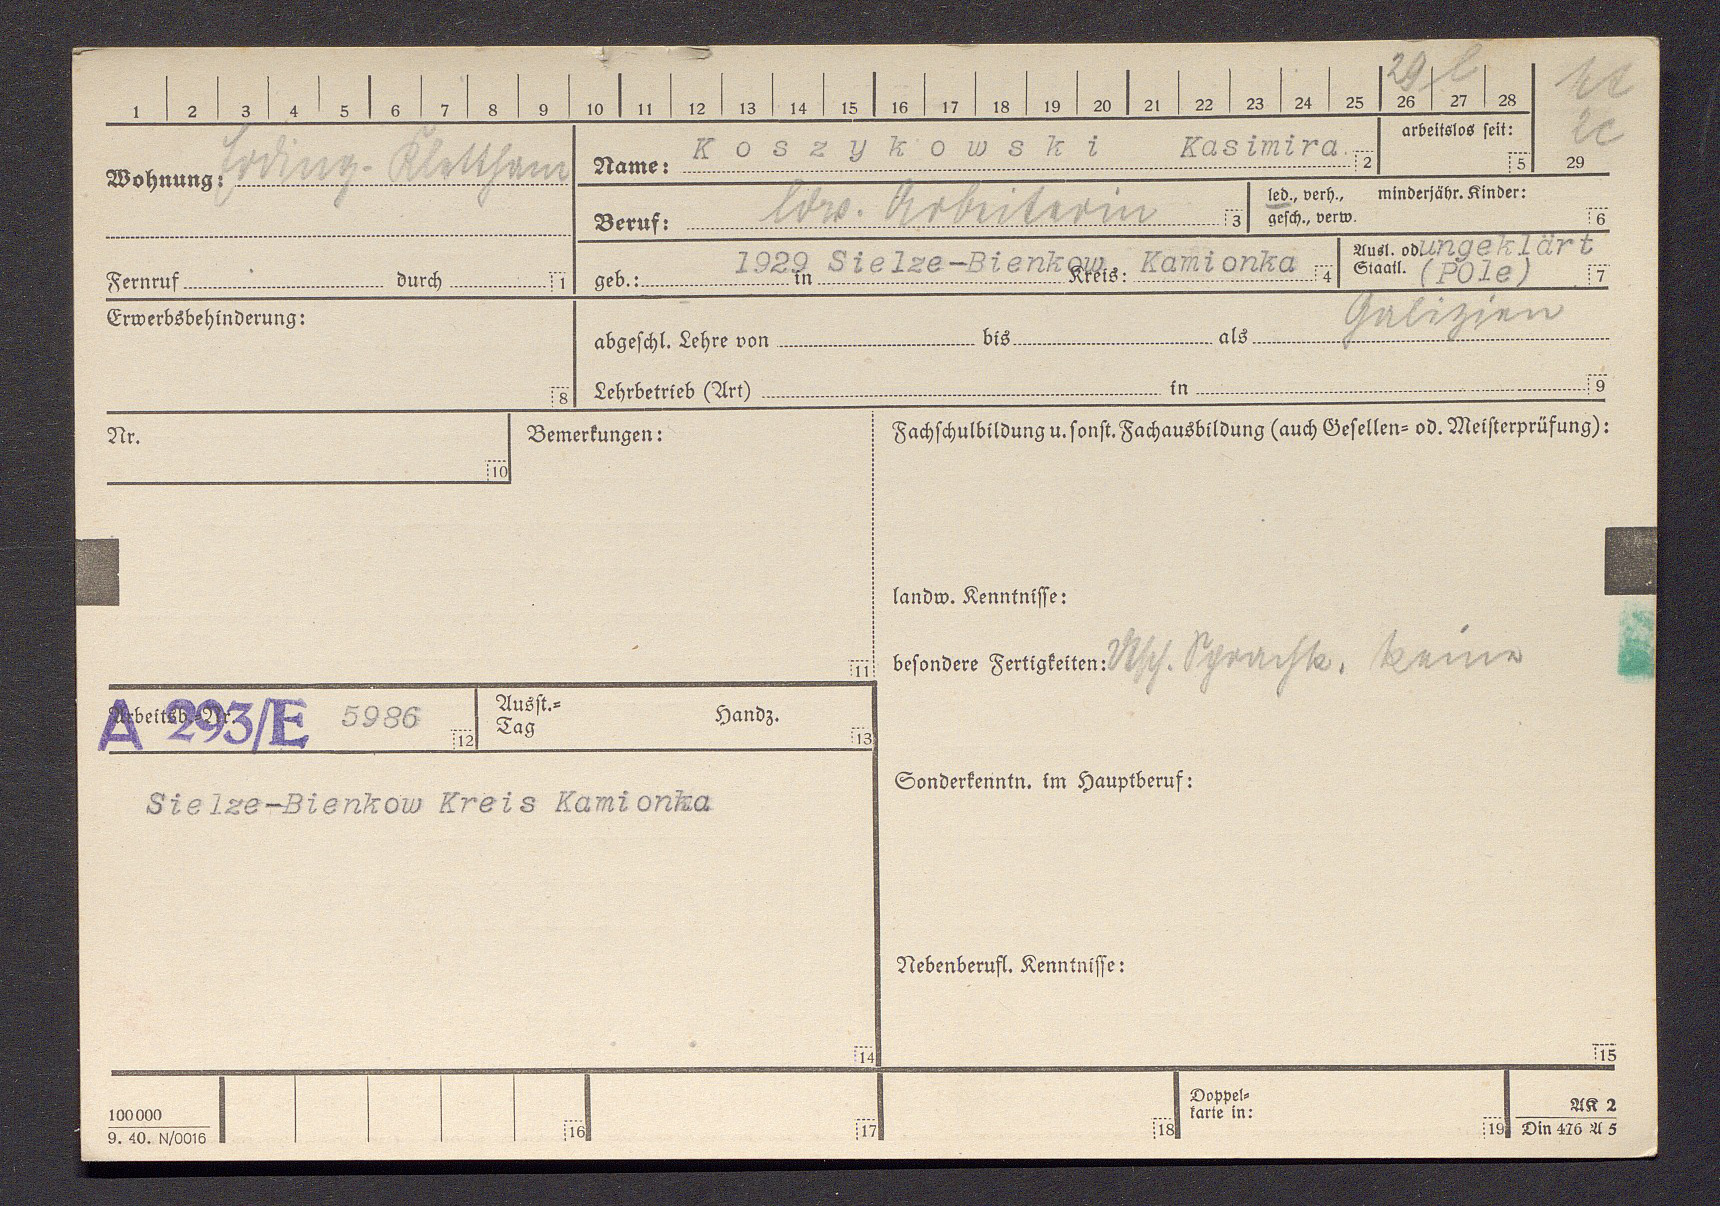 29 l
1 2 3 4 5 6 7 8 9 10 11 12 13 14 15 16 17 18 19 20 21 22 23 24 25 26 27 28
29
Wohnung: Erding-Klettham
Name: Koszykowski Kasimira 2
arbeitslos seit: 5
Beruf: ldw. Arbeiterin 3
led., verh., minderjähr. Kinder:
gesch., verw. 6
Fernruf durch 1
geb.: 1929 in Sielze-Bienkow Kreis: Kamionka 4
Ausl. od. ungeklärt
Staatl. (POle) 7
Erwerbsbehinderung: 8
Galizien
abgeschl. Lehre von bis als
Lehrbetrieb (Art) in 9
Nr. 10
Bemerkungen: 11
Fachschulbildung u. sonst. Fachausbildung (auch Gesellen- od. Meisterprüfung):
landw. Kenntnisse:
besondere Fertigkeiten: Dtsch. Sprachk. keine
Arbeitsb.-Nr. A 293/E 5986 12
Ausst.-
Tag Handz. 13
Sonderkenntn. im Hauptberuf:
Sielze-Bienkow Kreis Kamionka
Nebenberufl. Kenntnisse:
14
15
100000
9. 40. N/0016
16 17 18
Doppel-
karte in: 19
AK 2
Din 476 A 5